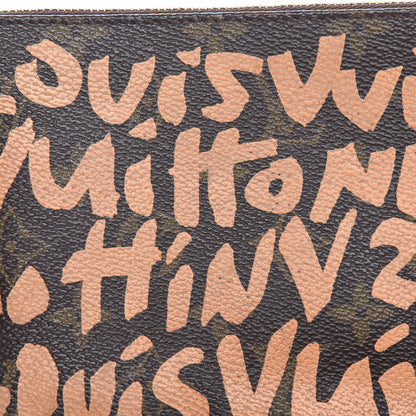 LOUiS VU
MiTTON
HiNV 2
OUiS VUi